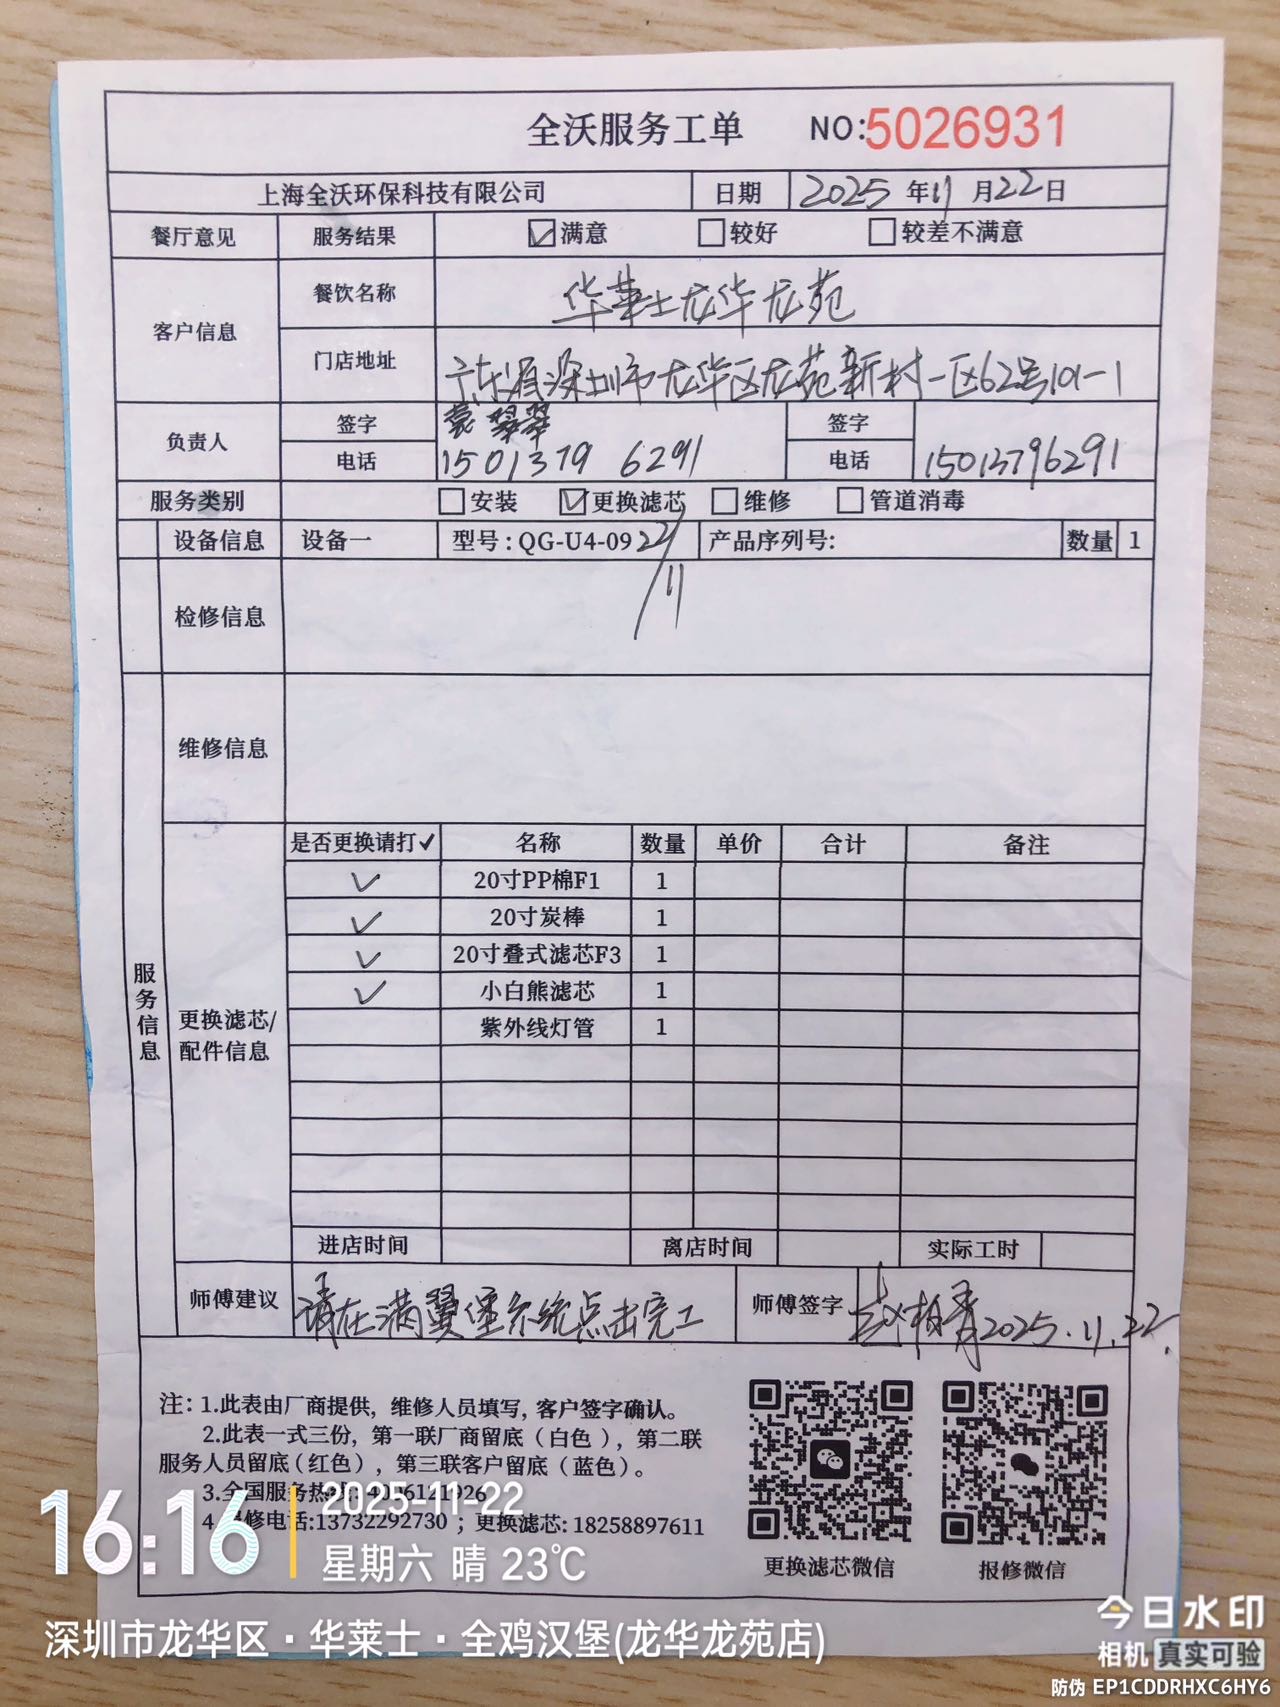 全沃服务工单 NO:5026931
上海全沃环保科技有限公司 日期 2025 年 11 月 22 日
餐厅意见 服务结果 ☑满意 □较好 □较差不满意
客户信息 餐饮名称 华莱士龙华龙苑
门店地址 广东省深圳市龙华区龙苑新村一区62号101-1
负责人 签字 袁翠翠 签字
电话 15013796291 电话 15013796291
服务类别 □安装 ☑更换滤芯 □维修 □管道消毒
设备信息 设备一 型号:QG-U4-09 产品序列号: 数量 1
22/11
检修信息
维修信息
服务信息
更换滤芯/配件信息
是否更换请打✓ 名称 数量 单价 合计 备注
✓ 20寸PP棉F1 1
✓ 20寸炭棒 1
✓ 20寸叠式滤芯F3 1
✓ 小白熊滤芯 1
紫外线灯管 1
进店时间 离店时间 实际工时
师傅建议 请在满翼堡系统点击完工 师傅签字 赵柏青2025.11.22.
注:1.此表由厂商提供,维修人员填写,客户签字确认。
2.此表一式三份,第一联厂商留底(白色),第二联
服务人员留底(红色),第三联客户留底(蓝色)。
3.全国服务热线:4006121926
4.报修电话:13732292730;更换滤芯:18258897611
更换滤芯微信 报修微信
16:16
2025-11-22
星期六 晴 23℃
深圳市龙华区·华莱士·全鸡汉堡(龙华龙苑店)
今日水印
相机 真实可验
防伪 EP1CDDRHXC6HY6